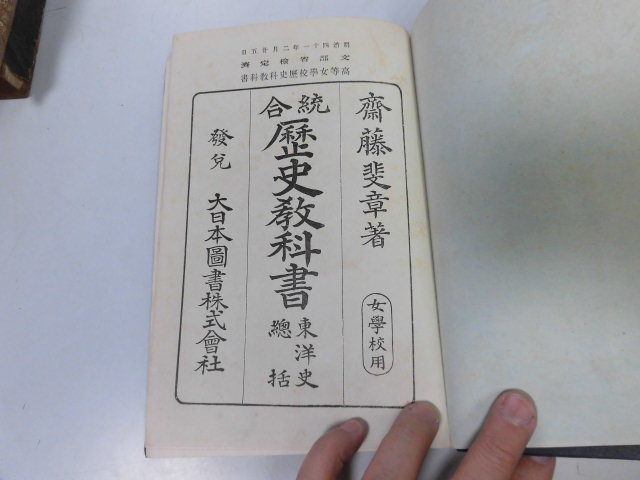 明治四十一年二月廿五日
文部省檢定濟
高等女學校歷史科教科書
齋藤斐章著
女學校用
統合歷史教科書
東洋史
總括
發兌 大日本圖書株式會社